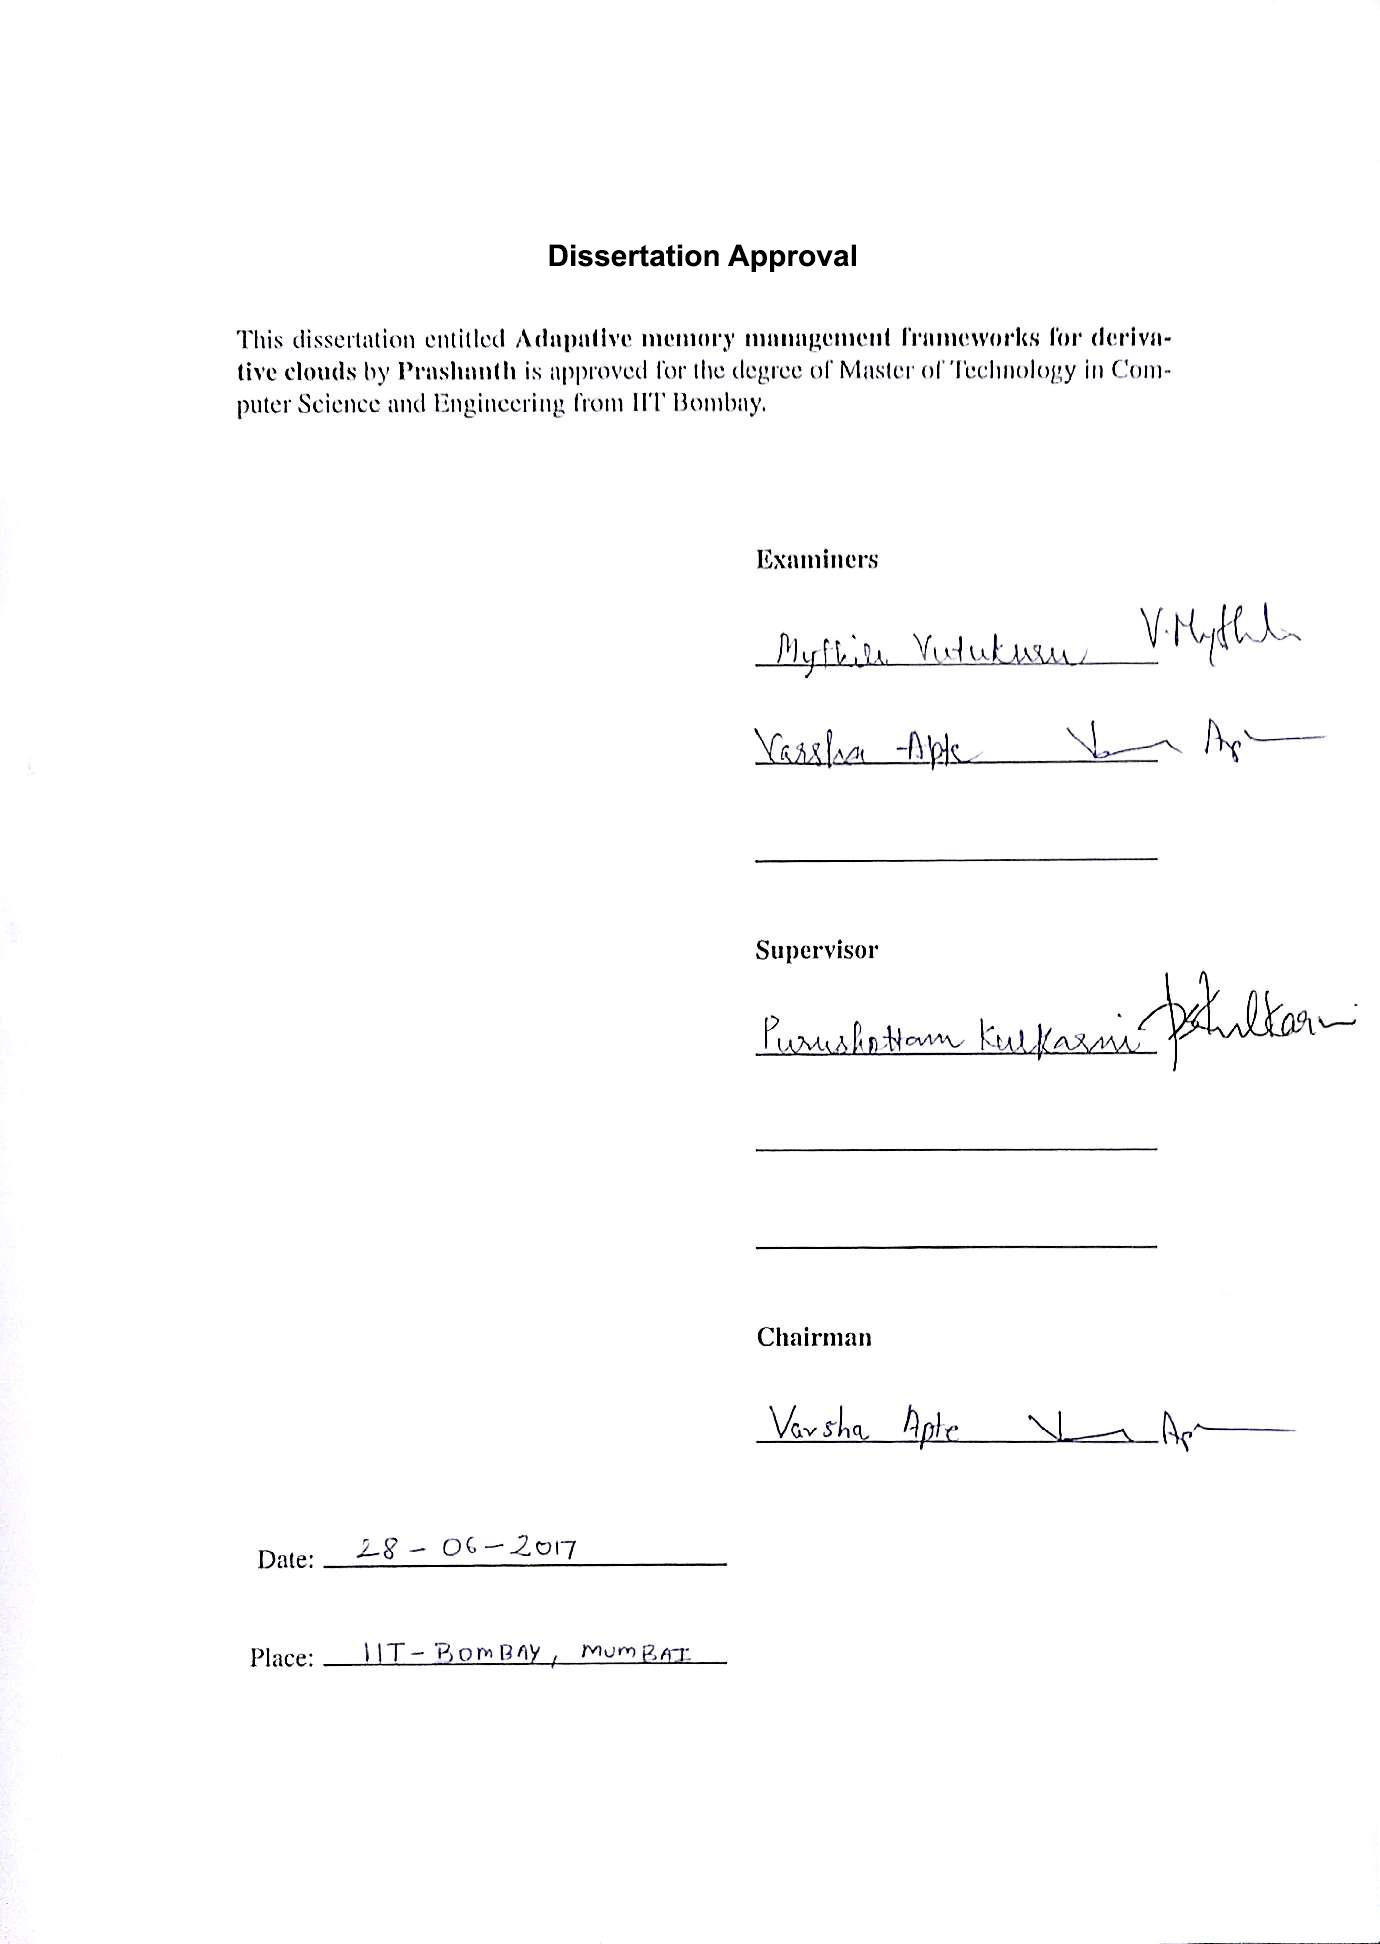 Dissertation Approval
This dissertation entitled Adapative memory management frameworks for deriva-
tive clouds by Prashanth is approved for the degree of Master of Technology in Com-
puter Science and Engineering from IIT Bombay.
Examiners
Mythili Vutukuru V.Mythili
Varsha Apte
Supervisor
Purushottam Kulkarni PKulkarni
Chairman
Varsha Apte
Date: 28-06-2017
Place: IIT-BOMBAY, MUMBAI